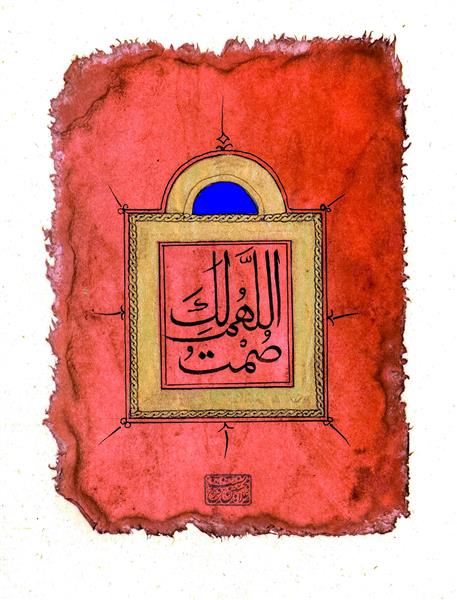 اللَّهُمَّ لَكَ
صُمْتُ